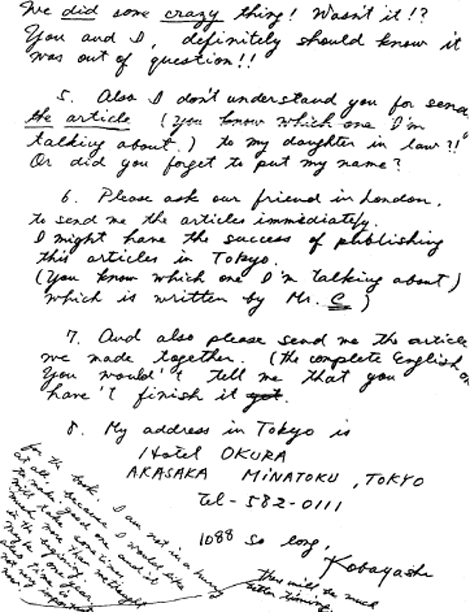 We did some crazy thing! Wasn't it!?
You and I, definitely should know it
was out of question!!
5. Also I don't understand you for send
the article (you know which one I'm
talking about.) to my daughter in law?!
Or did you forget to put my name?
6. Please ask our friend in London,
to send me the articles immediately.
I might have the success of publishing
this articles in Tokyo.
(You know which one I'm talking about)
which is written by Mr. C)
7. And also please send me the article
we made together. (the complete English
You would't tell me that you
have't finish it yet.
8. My address in Tokyo is
Hotel OKURA
AKASAKA MINATOKU, TOKYO
tel - 582-0111
1088 So long,
Kobayashi
for the book. I am not in a hurry
at all, because I would like
to make good one and it
will take sometimes
much more than we thought
in the beginning
maybe one year
also time is
not very important
now!
there will be much
better timing!